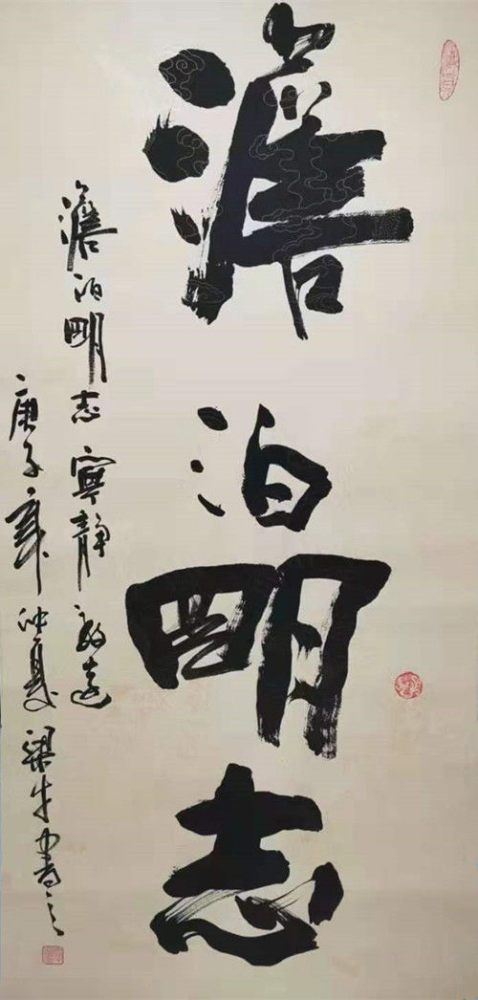 澹泊明志
澹泊明志寧靜致遠
庚子年仲夏梁書之